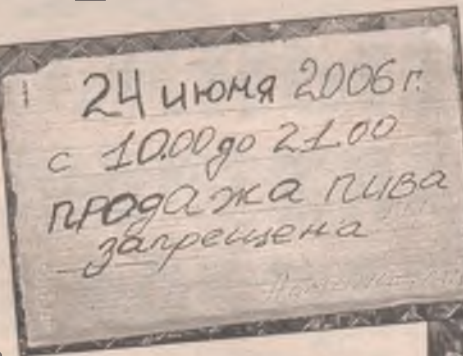 24 июня 2006 г.
с 10.00 до 21.00
продажа пива
запрещена